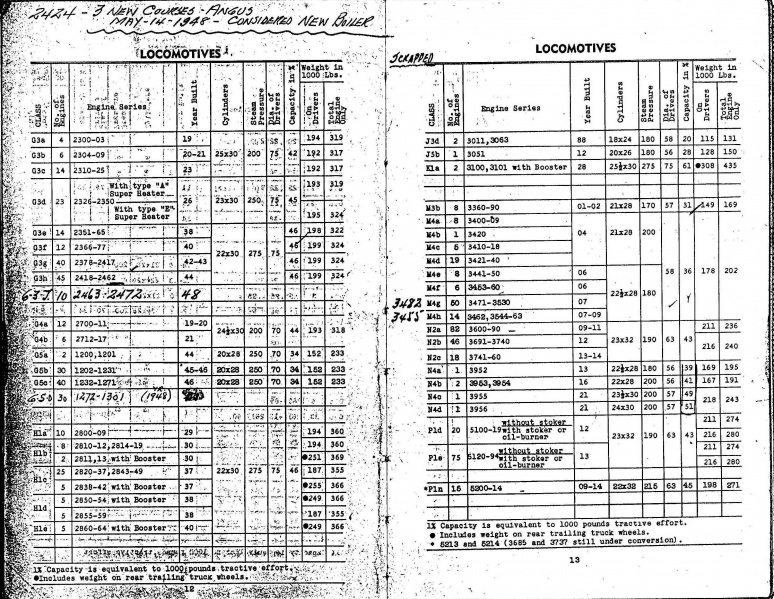 2424 - 3 NEW COURSES - ANGUS
MAY-14-1948 - CONSIDERED NEW BOILER
LOCOMOTIVES
CLASS No. of Engines Engine Series Year Built Cylinders Steam Pressure Dia. of Drivers Capacity in % Weight in 1000 Lbs. On Drivers Total Engine Only
G3a 4 2300-03 19 194 319
G3b 6 2304-09 20-21 25x30 200 75 42 192 317
G3c 14 2310-25 23 192 317
G3d 23 2326-2350 With type "A" Super Heater 26 23x30 250 75 45 193 319
With type "E" Super Heater 195 324
G3e 14 2351-65 38 46 198 322
G3f 12 2366-77 40 22x30 275 75 46 199 324
G3g 40 2378-2417 42-43 46 199 324
G3h 45 2418-2462 44 46 199 324
G-3-J. 10 2463-2472 48
G4a 12 2700-11 19-20 24½x30 200 70 44 193 318
G4b 6 2712-17 21
G5a 2 1200,1201 44 20x28 250 70 34 152 233
G5b 30 1202-1231 45-46 20x28 250 70 34 152 233
G5c 40 1232-1271 46 20x28 250 70 34 152 233
G-5-D 30 1272-1301 (1948)
H1a 10 2800-09 29 194 360
H1b 8 2810-12,2814-19 30 194 360
2 2811,13 with Booster 30 ●251 369
H1c 25 2820-37,2843-49 37 22x30 275 75 46 187 355
5 2838-42 with Booster 37 ●255 366
H1d 5 2850-54 with Booster 38 ●249 366
5 2855-59 38 187 355
H1e 5 2860-64 with Booster 40 ●249 366
1% Capacity is equivalent to 1000 pounds tractive effort.
●Includes weight on rear trailing truck wheels.
12
LOCOMOTIVES
SCRAPPED
CLASS No. of Engines Engine Series Year Built Cylinders Steam Pressure Dia. of Drivers Capacity in % Weight in 1000 Lbs. On Drivers Total Engine Only
J3d 2 3011,3063 88 18x24 180 58 20 115 131
J5b 1 3051 12 20x26 180 56 28 128 150
K1a 2 3100,3101 with Booster 28 25½x30 275 75 61 ●308 435
M3b 8 3360-90 01-02 21x28 170 57 31 149 169
M4a 8 3400-09
M4b 1 3420 04 21x28 200
M4c 5 3410-18
M4d 19 3421-40
M4e 8 3441-50 06 58 36 178 202
M4f 6 3453-60 06 22½x28 180
3482 M4g 50 3471-3530 07
3455 M4h 14 3462,3544-63 07-09
N2a 82 3600-90 09-11 211 236
N2b 46 3691-3740 12 23x32 190 63 43 216 240
N2c 18 3741-60 13-14
N4a 1 3952 13 22½x28 180 56 39 169 195
N4b 2 3953,3954 16 22x28 200 56 41 167 191
N4c 1 3955 21 23½x30 200 57 49 218 243
N4d 1 3956 21 24x30 200 57 51
P1d 20 5100-19 without stoker 12 211 274
with stoker or oil-burner 23x32 190 63 43 216 280
P1e 75 5120-94 without stoker 13 211 274
with stoker or oil-burner 216 280
*P1n 15 5200-14 09-14 22x32 215 63 45 198 271
1% Capacity is equivalent to 1000 pounds tractive effort.
● Includes weight on rear trailing truck wheels.
* 5213 and 5214 (3685 and 3737 still under conversion).
13